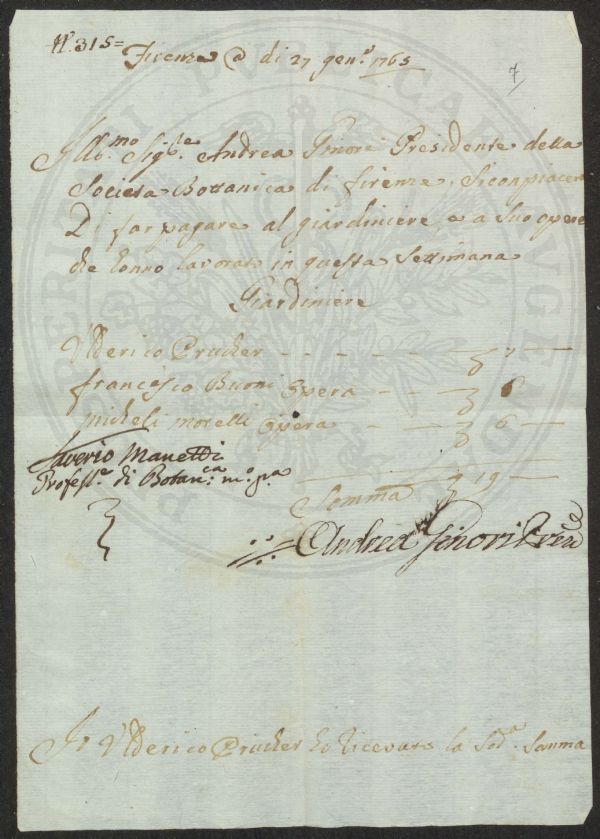 N.° 315=
Firenze @ di 27 gen.° 1765
7
Illb.mo Sig.re Andrea Ginori Presidente della
Societa Bottanica di firenze, Siconpiacera
Di far pagare al giardiniere, e a Suo opere
che honno lavorato in questa Settimana
Giardiniere
Ulderico Prucher - - - - - - 7 —
francesco Buoni opera - - — 6
Micheli morelli opera - - — 6 —
Saverio Manetti
Profess.re di Botan.ca m.o p.a
Somma 19 —
Andrea Ginori Presid.e
Io Ulderico Prucher ho ricevuto la Sod.a Somma
PERICULI PUBLICAE AUGENDAE PROSPERITATI